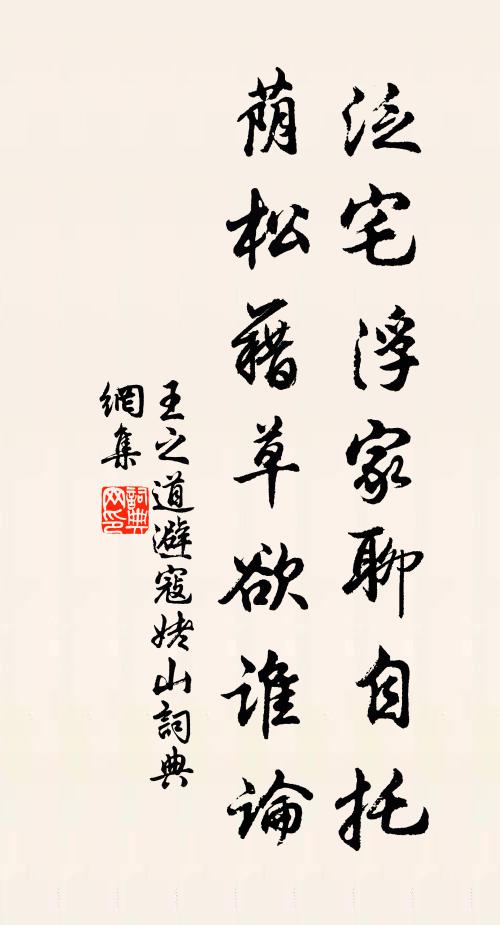 泛宅浮家聊自托
荫松藉草欲谁论
王之道避寇姥山詞典
網集
詞典
网印